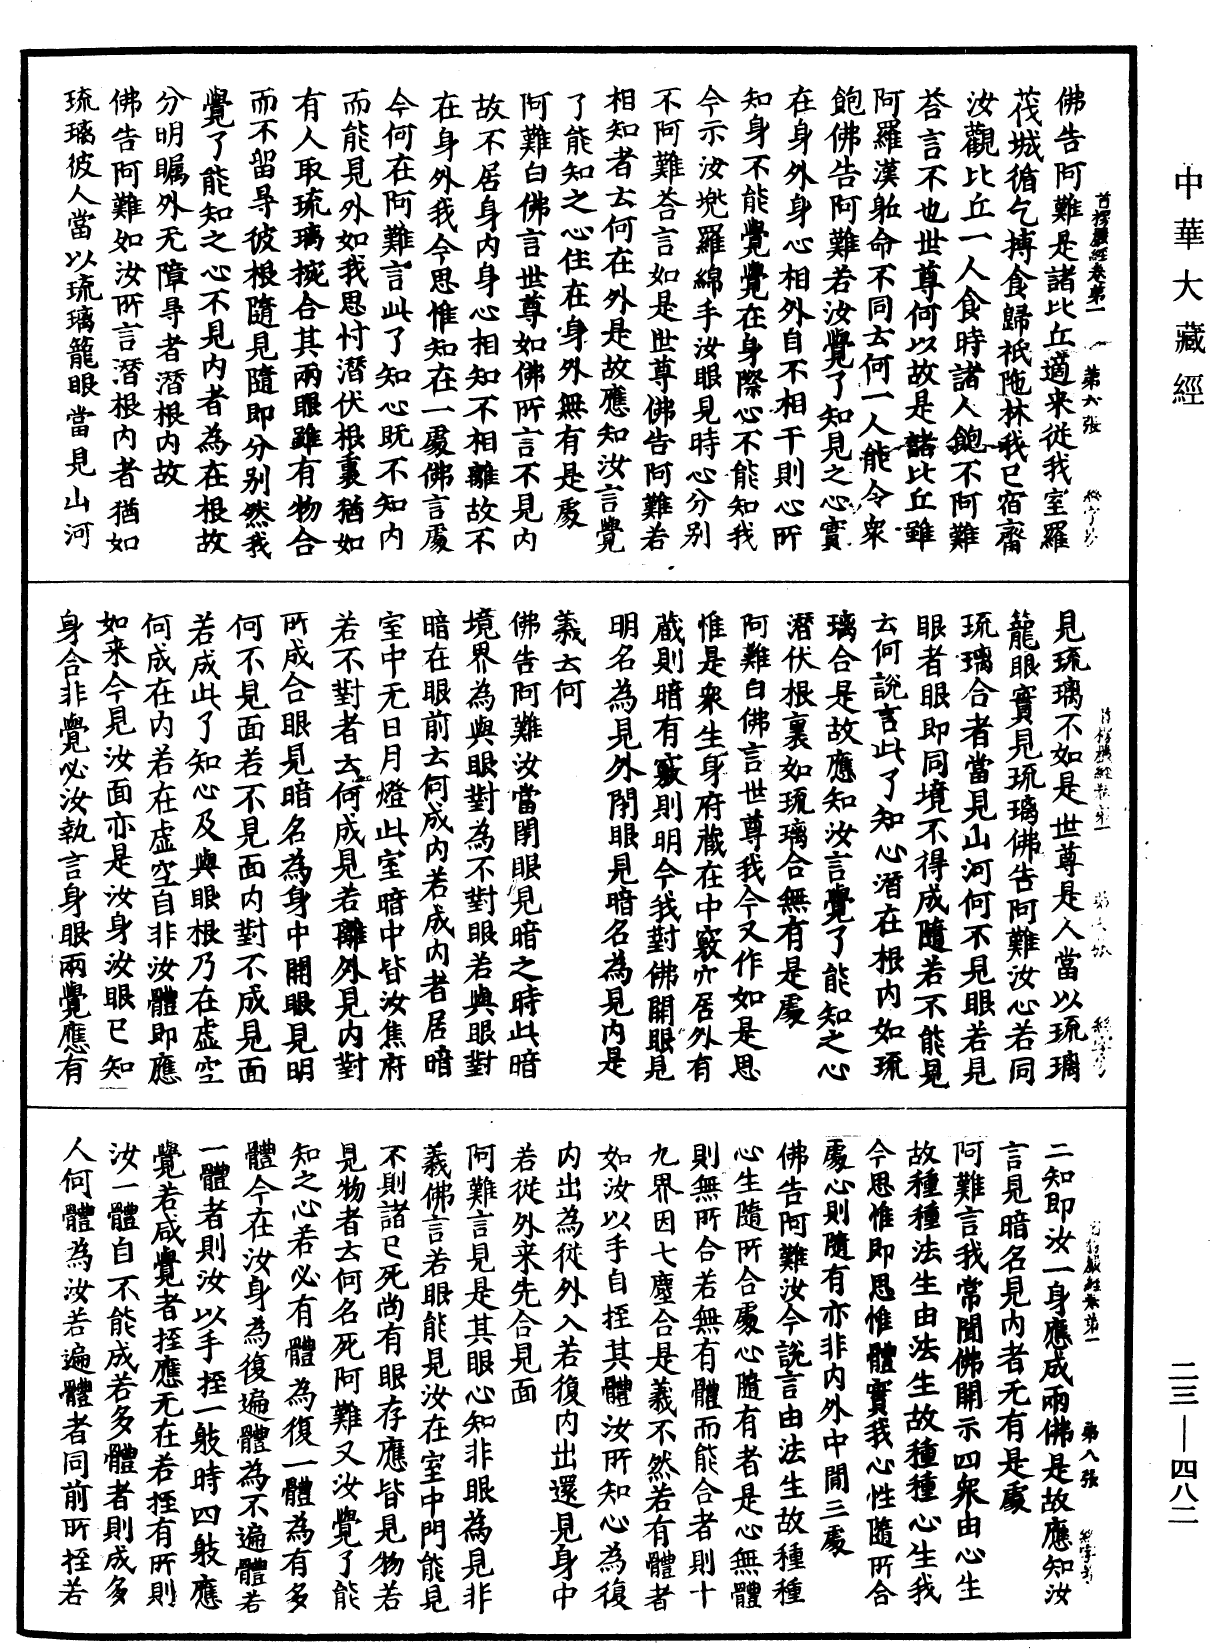 中華大藏經
首楞嚴經卷第一 第六張
佛告阿難是諸比丘適来從我室羅
茷城循乞摶食歸祇陁林我已宿齋
汝觀比丘一人食時諸人飽不阿難
荅言不也世尊何以故是諸比丘雖
阿羅漢軀命不同去何一人能令衆
飽佛告阿難若汝覺了知見之心實
在身外身心相外自不相干則心所
知身不能覺覺在身際心不能知我
今示汝兠羅綿手汝眼見時心分别
不阿難荅言如是世尊佛告阿難若
相知者去何在外是故應知汝言覺
了能知之心住在身外無有是處
阿難白佛言世尊如佛所言不見内
故不居身内身心相知不相離故不
在身外我今思惟知在一處佛言處
今何在阿難言此了知心既不知内
而能見外如我思忖潛伏根裏猶如
有人取琉璃㧍合其兩眼雖有物合
而不留㝵彼根隨見隨即分别然我
覺了能知之心不見内者為在根故
分明矚外无障㝵者潛根内故
佛告阿難如汝所言潛根内者猶如
琉璃彼人當以琉璃籠眼當見山河
見琉璃不如是世尊是人當以琉璃
籠眼實見琉璃佛告阿難汝心若同
琉璃合者當見山河何不見眼若見
眼者眼即同境不得成隨若不能見
去何說言此了知心潛在根内如琉
璃合是故應知汝言覺了能知之心
潛伏根裏如琉璃合無有是處
阿難白佛言世尊我今又作如是思
惟是衆生身府藏在中竅穴居外有
藏則暗有竅則明今我對佛開眼見
明名為見外閉眼見暗名為見内是
義去何
佛告阿難汝當閉眼見暗之時此暗
境界為與眼對為不對眼若與眼對
暗在眼前去何成内若成内者居暗
室中无日月燈此室暗中皆汝焦府
若不對者去何成見若離外見内對
所成合眼見暗名為身中開眼見明
何不見面若不見面内對不成見面
若成此了知心及與眼根乃在虛空
何成在内若在虛空自非汝體即應
如来今見汝面亦是汝身汝眼已知
身合非覺必汝執言身眼兩覺應有
首楞嚴經卷第一 第八張
二知即汝一身應成兩佛是故應知汝
言見暗名見内者无有是處
阿難言我常聞佛開示四衆由心生
故種種法生由法生故種種心生我
今思惟即思惟體實我心性隨所合
處心則隨有亦非内外中間三處
佛告阿難汝今說言由法生故種種
心生隨所合處心隨有者是心無體
則無所合若無有體而能合者則十
九界因七塵合是義不然若有體者
如汝以手自挃其體汝所知心為復
内出為從外入若復内出還見身中
若從外来先合見面
阿難言見是其眼心知非眼為見非
義佛言若眼能見汝在室中門能見
不則諸已死尚有眼存應皆見物若
見物者去何名死阿難又汝覺了能
知之心若必有體為復一體為有多
體今在汝身為復遍體為不遍體若
一體者則汝以手挃一䏢時四䏢應
覺若咸覺者挃應无在若挃有所則
汝一體自不能成若多體者則成多
人何體為汝若遍體者同前所挃若
二三—四八二